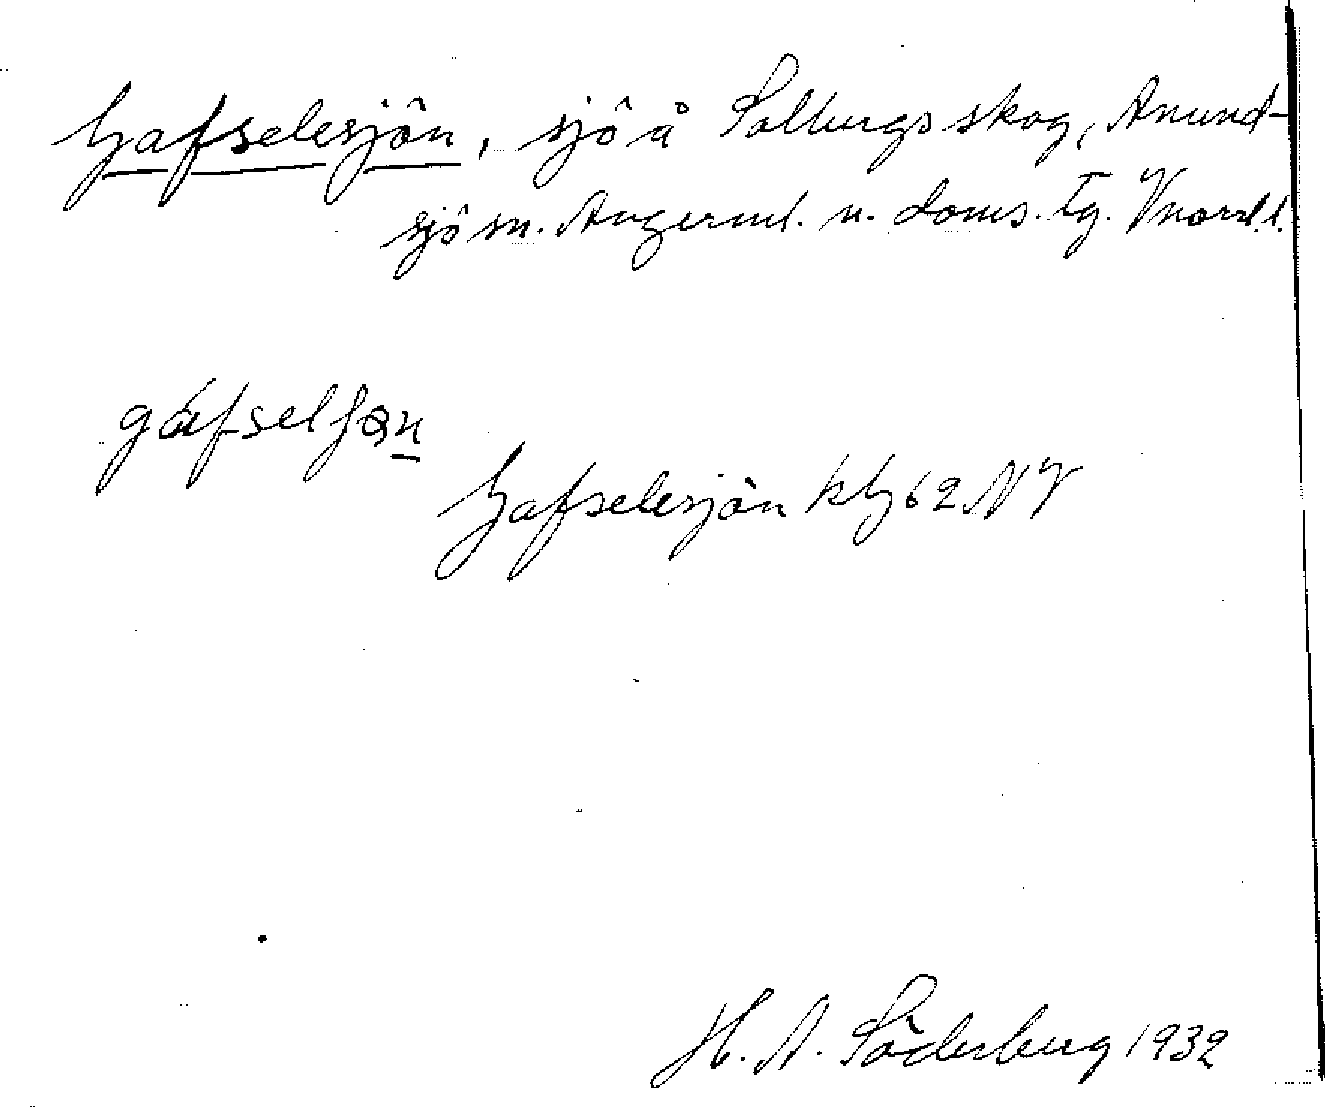 Gafselesjön, sjö å Solbergs skog, Anund-
sjö sn. Ångerml. n. doms. tg. Vnorrl. l.
gáfselʃøn
Gafselesjön kbg 62 NV
H. A. Söderberg 1932